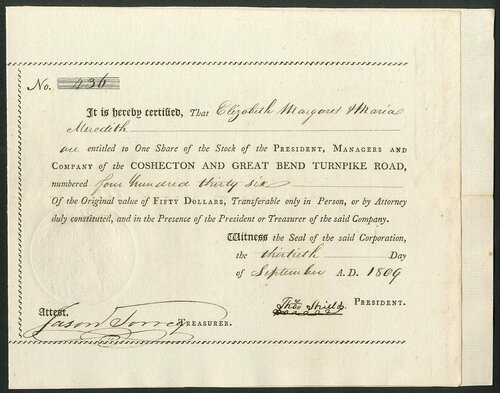 No. 436
It is hereby certified, That Elizabeth Margaret & Maria
Meredith
are entitled to One Share of the Stock of the PRESIDENT, MANAGERS AND
COMPANY of the COSHECTON AND GREAT BEND TURNPIKE ROAD,
numbered four hundred thirty six
Of the Original value of FIFTY DOLLARS, Transferable only in Person, or by Attorney
duly constituted, and in the Presence of the President or Treasurer of the said Company.
Witness the Seal of the said Corporation,
the thirtieth Day
of September A. D. 1809
Thos Shields PRESIDENT.
Attest.
Jason Torrey TREASURER.